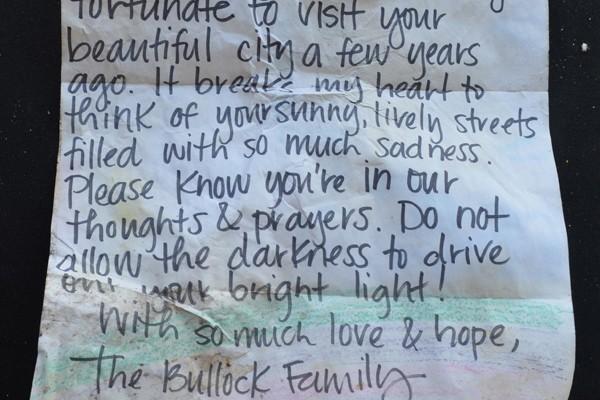 fortunate to visit your
beautiful city a few years
ago. It breaks my heart to
think of your sunny, lively streets
filled with so much sadness.
Please know you're in our
thoughts & prayers. Do not
allow the darkness to drive
out your bright light!
With so much love & hope,
The Bullock Family